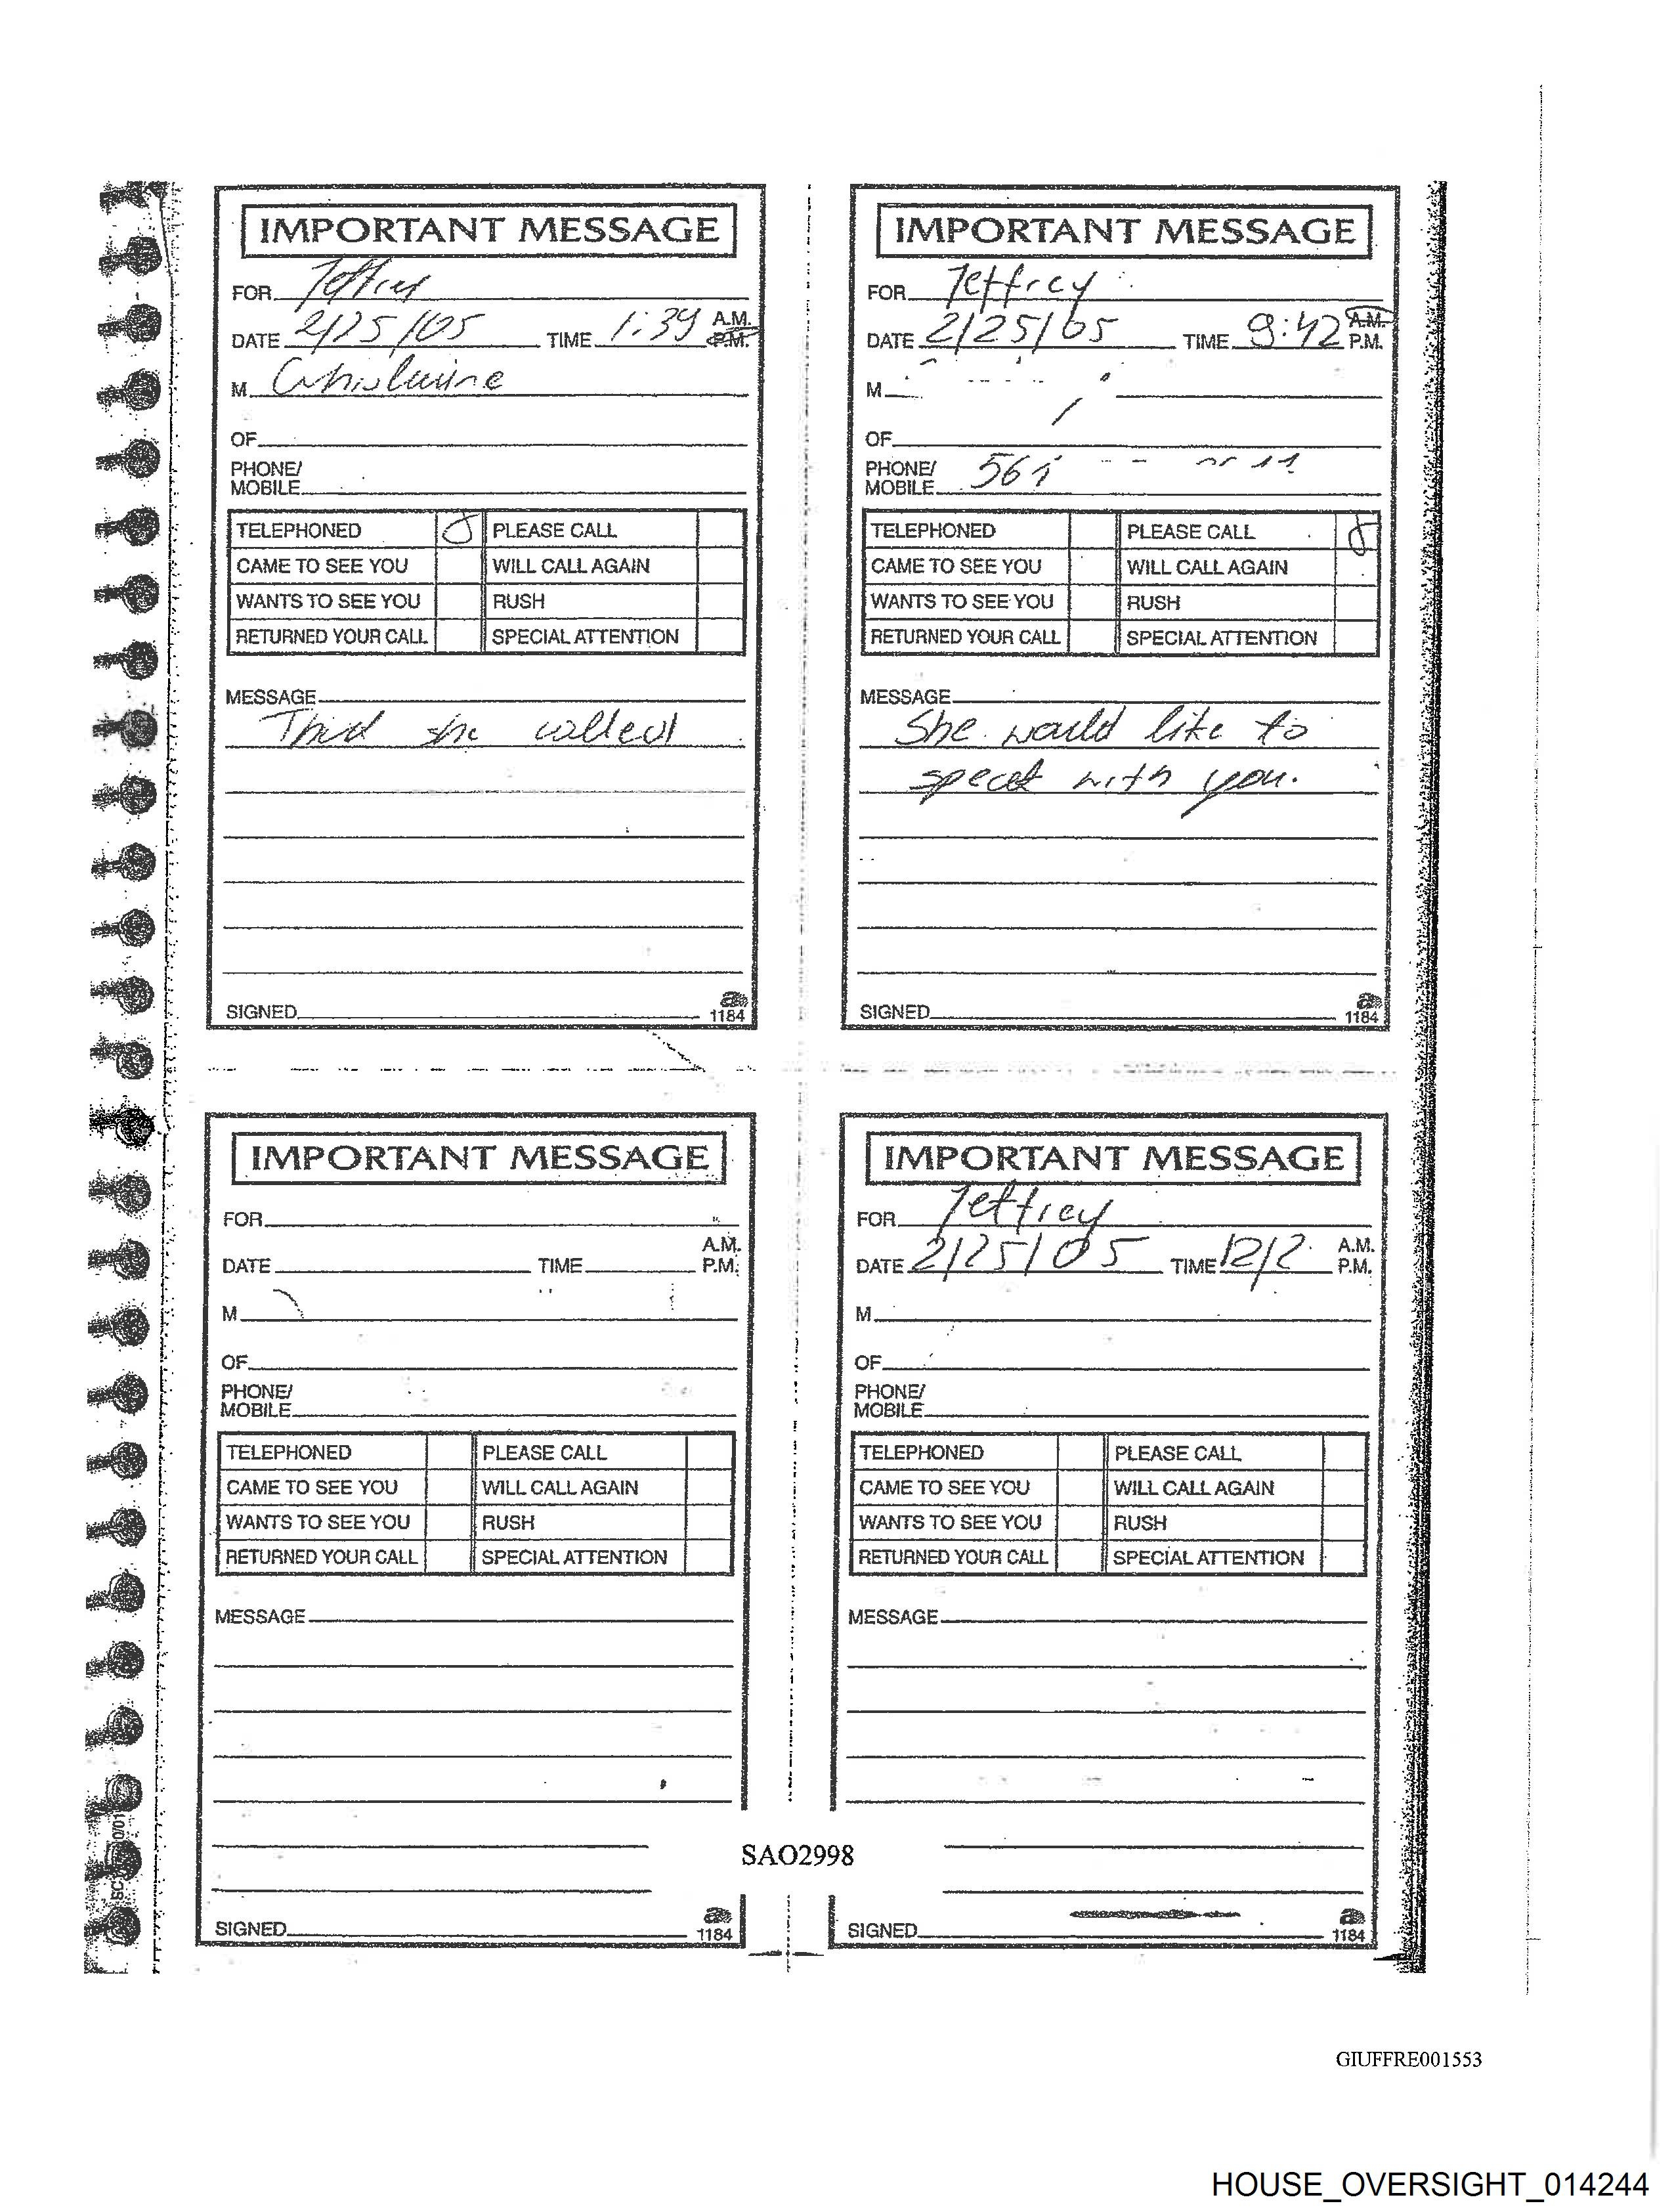 IMPORTANT MESSAGE
FOR Jeffrey
DATE 2/25/05 TIME 1:39 A.M. P.M.
M Ghislaine
OF
PHONE/
MOBILE
TELEPHONED PLEASE CALL
CAME TO SEE YOU WILL CALL AGAIN
WANTS TO SEE YOU RUSH
RETURNED YOUR CALL SPECIAL ATTENTION
MESSAGE
she called
SIGNED
1184
IMPORTANT MESSAGE
FOR Jeffrey
DATE 2/25/05 TIME 9:42 A.M. P.M.
M
OF
PHONE/
MOBILE 561
TELEPHONED PLEASE CALL
CAME TO SEE YOU WILL CALL AGAIN
WANTS TO SEE YOU RUSH
RETURNED YOUR CALL SPECIAL ATTENTION
MESSAGE
She would like to
with you.
SIGNED
1184
IMPORTANT MESSAGE
FOR
DATE TIME A.M. P.M.
M
OF
PHONE/
MOBILE
TELEPHONED PLEASE CALL
CAME TO SEE YOU WILL CALL AGAIN
WANTS TO SEE YOU RUSH
RETURNED YOUR CALL SPECIAL ATTENTION
MESSAGE
SIGNED
1184
IMPORTANT MESSAGE
FOR Jeffrey
DATE 2/25/05 TIME A.M. P.M.
M
OF
PHONE/
MOBILE
TELEPHONED PLEASE CALL
CAME TO SEE YOU WILL CALL AGAIN
WANTS TO SEE YOU RUSH
RETURNED YOUR CALL SPECIAL ATTENTION
MESSAGE
SIGNED
1184
SAO2998
GIUFFRE001553
HOUSE_OVERSIGHT_014244